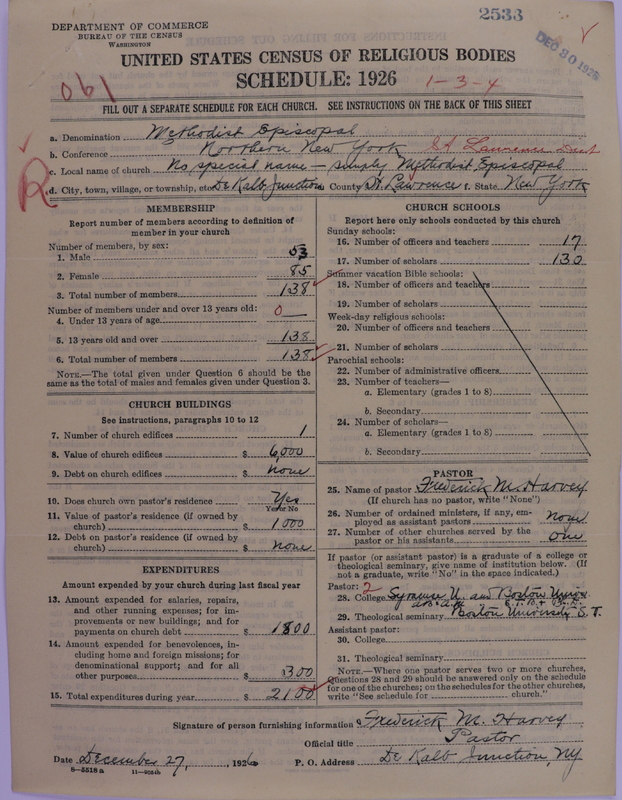 2533
DEPARTMENT OF COMMERCE
BUREAU OF THE CENSUS
WASHINGTON
DEC 30 1926
UNITED STATES CENSUS OF RELIGIOUS BODIES
SCHEDULE: 1926
1-3-4
061
FILL OUT A SEPARATE SCHEDULE FOR EACH CHURCH. SEE INSTRUCTIONS ON THE BACK OF THIS SHEET
a. Denomination Methodist Episcopal
b. Conference Northern New York St Lawrence Dist
c. Local name of church No special name - simply Methodist Episcopal
R
d. City, town, village, or township, etc. De Kalb Junction County St. Lawrence f. State New York
MEMBERSHIP
Report number of members according to definition of
member in your church
Number of members, by sex:
1. Male 53
2. Female 85
3. Total number of members 138
Number of members under and over 13 years old:
4. Under 13 years of age 0
5. 13 years old and over 138
6. Total number of members 138
NOTE.—The total given under Question 6 should be
same as the total of males and females given under Question 3.
CHURCH BUILDINGS
See instructions, paragraphs 10 to 12
7. Number of church edifices 1
8. Value of church edifices $ 6,000
9. Debt on church edifices $ none
10. Does church own pastor's residence Yes
Yes or No
11. Value of pastor's residence (if owned by
church) $ 1000
12. Debt on pastor's residence (if owned by
church) $ none
EXPENDITURES
Amount expended by your church during last fiscal year
13. Amount expended for salaries, repairs,
and other running expenses; for im-
provements or new buildings; and for
payments on church debt $ 1800
14. Amount expended for benevolences, in-
cluding home and foreign missions; for
denominational support; and for all
other purposes $ 300
15. Total expenditures during year $ 2100
CHURCH SCHOOLS
Report here only schools conducted by this church
Sunday schools:
16. Number of officers and teachers 17
17. Number of scholars 130
Summer vacation Bible schools:
18. Number of officers and teachers
19. Number of scholars
Week-day religious schools:
20. Number of officers and teachers
21. Number of scholars
Parochial schools:
22. Number of administrative officers
23. Number of teachers—
a. Elementary (grades 1 to 8)
b. Secondary
24. Number of scholars—
a. Elementary (grades 1 to 8)
b. Secondary
PASTOR
25. Name of pastor Frederick M. Harvey
(If church has no pastor, write "None")
26. Number of ordained ministers, if any, em-
ployed as assistant pastors none
27. Number of other churches served by the
pastor or his assistants one
If pastor (or assistant pastor) is a graduate of a college or
theological seminary, give name of institution below. (If
not a graduate, write "No" in the space indicated.)
Pastor: 2
28. College Syracuse U. and Boston Univ.
29. Theological seminary Boston University S. T.
Assistant pastor:
30. College
31. Theological seminary
NOTE.—Where one pastor serves two or more churches,
Questions 28 and 29 should be answered only on the schedule
for one of the churches; on the schedules for the other churches,
write "See schedule for church."
Signature of person furnishing information Frederick M. Harvey
Official title Pastor
Date December 27, 1926 P. O. Address De Kalb Junction, NY
8-5518a 11-9054b